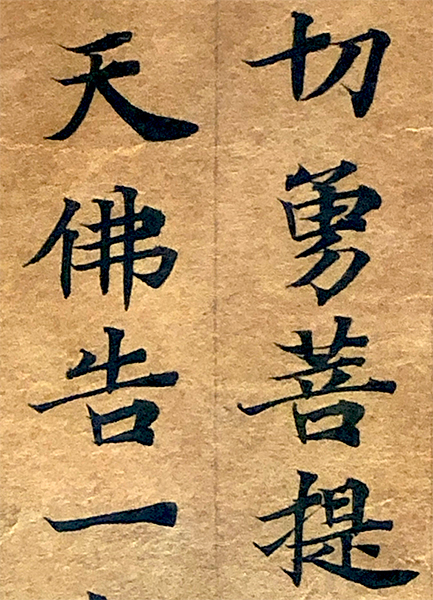 切勇菩提
天佛告一